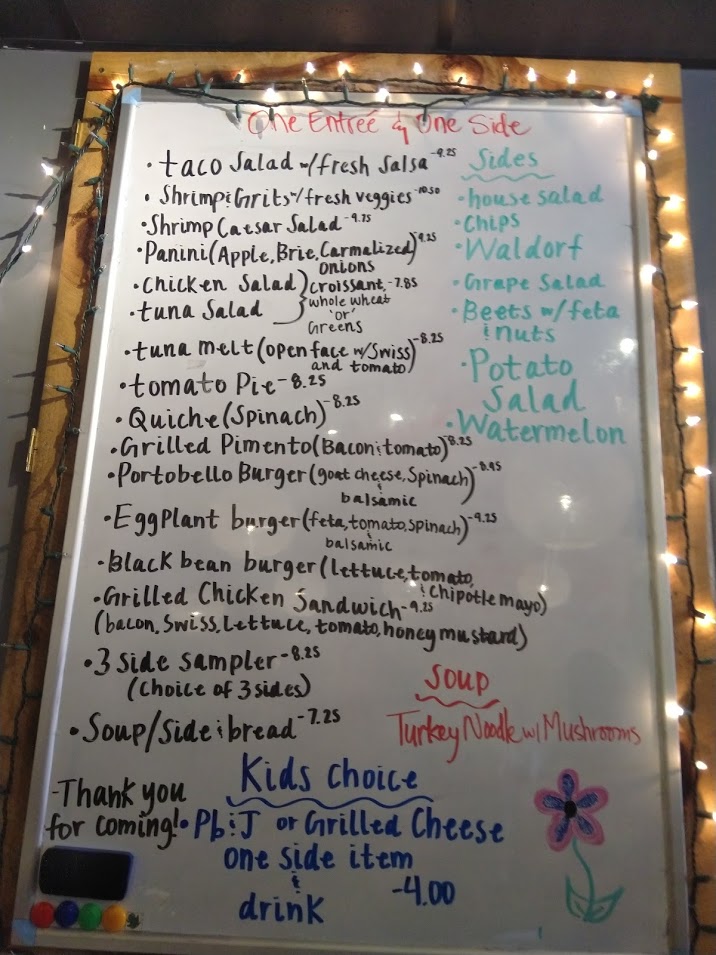 One Entreé & One Side
• taco Salad w/fresh Salsa -9.25
• Shrimp & Grits w/fresh veggies -10.50
• Shrimp Caesar Salad -9.75
• Panini (Apple, Brie, Carmalized -9.25
onions)
• Chicken Salad
• tuna Salad
croissant, -7.85
whole wheat
'or'
Greens
• tuna melt (open face w/Swiss -8.25
and tomato)
• tomato Pie -8.25
• Quiche (Spinach) -8.25
• Grilled Pimento (Bacon & tomato) -8.25
• Portobello Burger (goat cheese, Spinach) -8.95
& balsamic
• EggPlant burger (feta, tomato, spinach) -9.25
& balsamic
• Black bean burger (lettuce, tomato,
& Chipotle mayo)
• Grilled Chicken Sandwich -9.25
(bacon, Swiss, Lettuce, tomato, honey mustard)
• 3 side sampler -8.25
(choice of 3 sides)
• Soup/Side & bread -7.25
Sides
• house salad
• Chips
• Waldorf
• Grape Salad
• Beets w/feta
& nuts
• Potato
Salad
• Watermelon
Soup
Turkey Noodle w/ Mushrooms
-Thank you
for coming!
Kids Choice
• Pb & J or Grilled Cheese
one side item
&
drink
-4.00